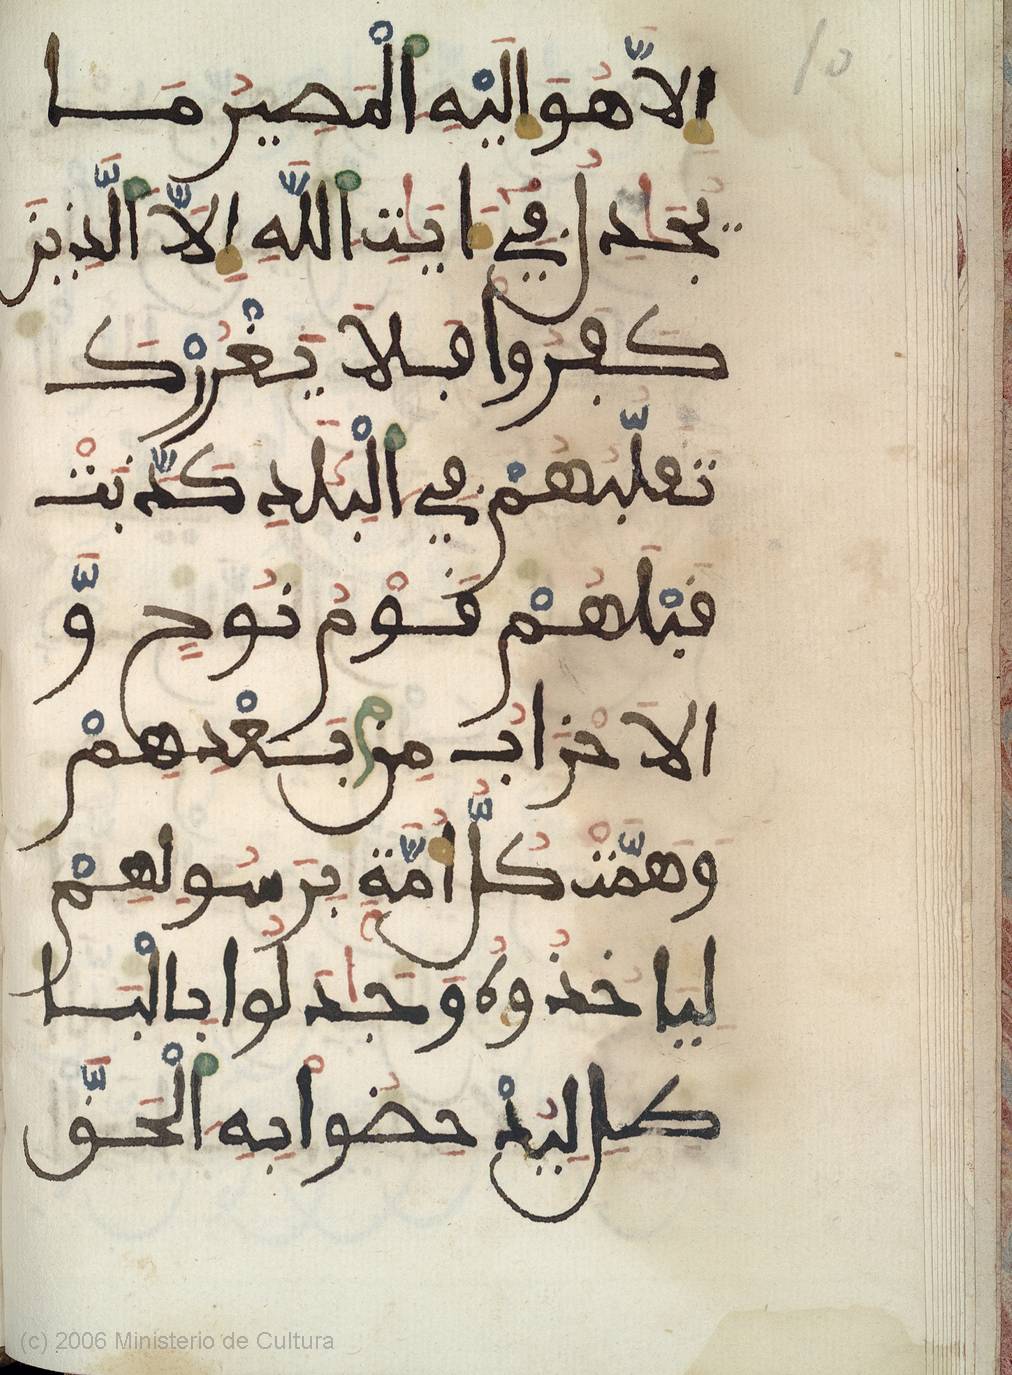 10
إِلَّا هُوَ إِلَيْهِ الْمَصِيرُ مَا
يُجَٰدِلُ فِي ءَايَٰتِ اللَّهِ إِلَّا الَّذِينَ
كَفَرُوا فَلَا يَغْرُرْكَ
تَقَلُّبُهُمْ فِي الْبِلَٰدِ كَذَّبَتْ
قَبْلَهُمْ قَوْمُ نُوحٍ وَّ
الَاحْزَابُ مِنۢ بَعْدِهِمْ
وَهَمَّتْ كُلُّ أُمَّةٍ بِرَسُولِهِمْ
لِيَاخُذُوهُ وَجَٰدَلُوا بِالْبَٰ
طِلِ لِيُدْحِضُوا بِهِ الْحَقَّ
(c) 2006 Ministerio de Cultura